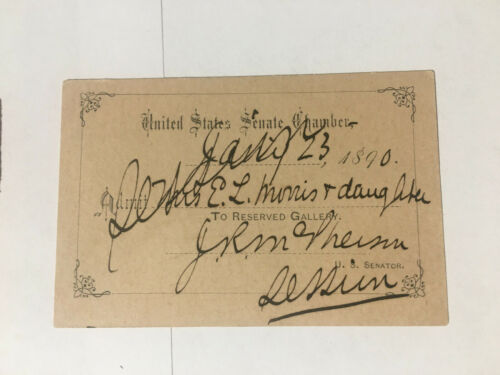 United States Senate Chamber,
Jan'y 23, 1890.
Admit Mrs E. L. Morris & daughter
TO RESERVED GALLERY.
J R McPherson
U. S. SENATOR.
Session